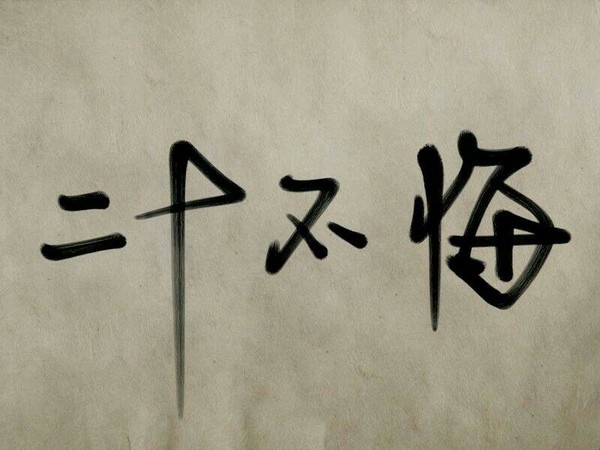 二十不悔